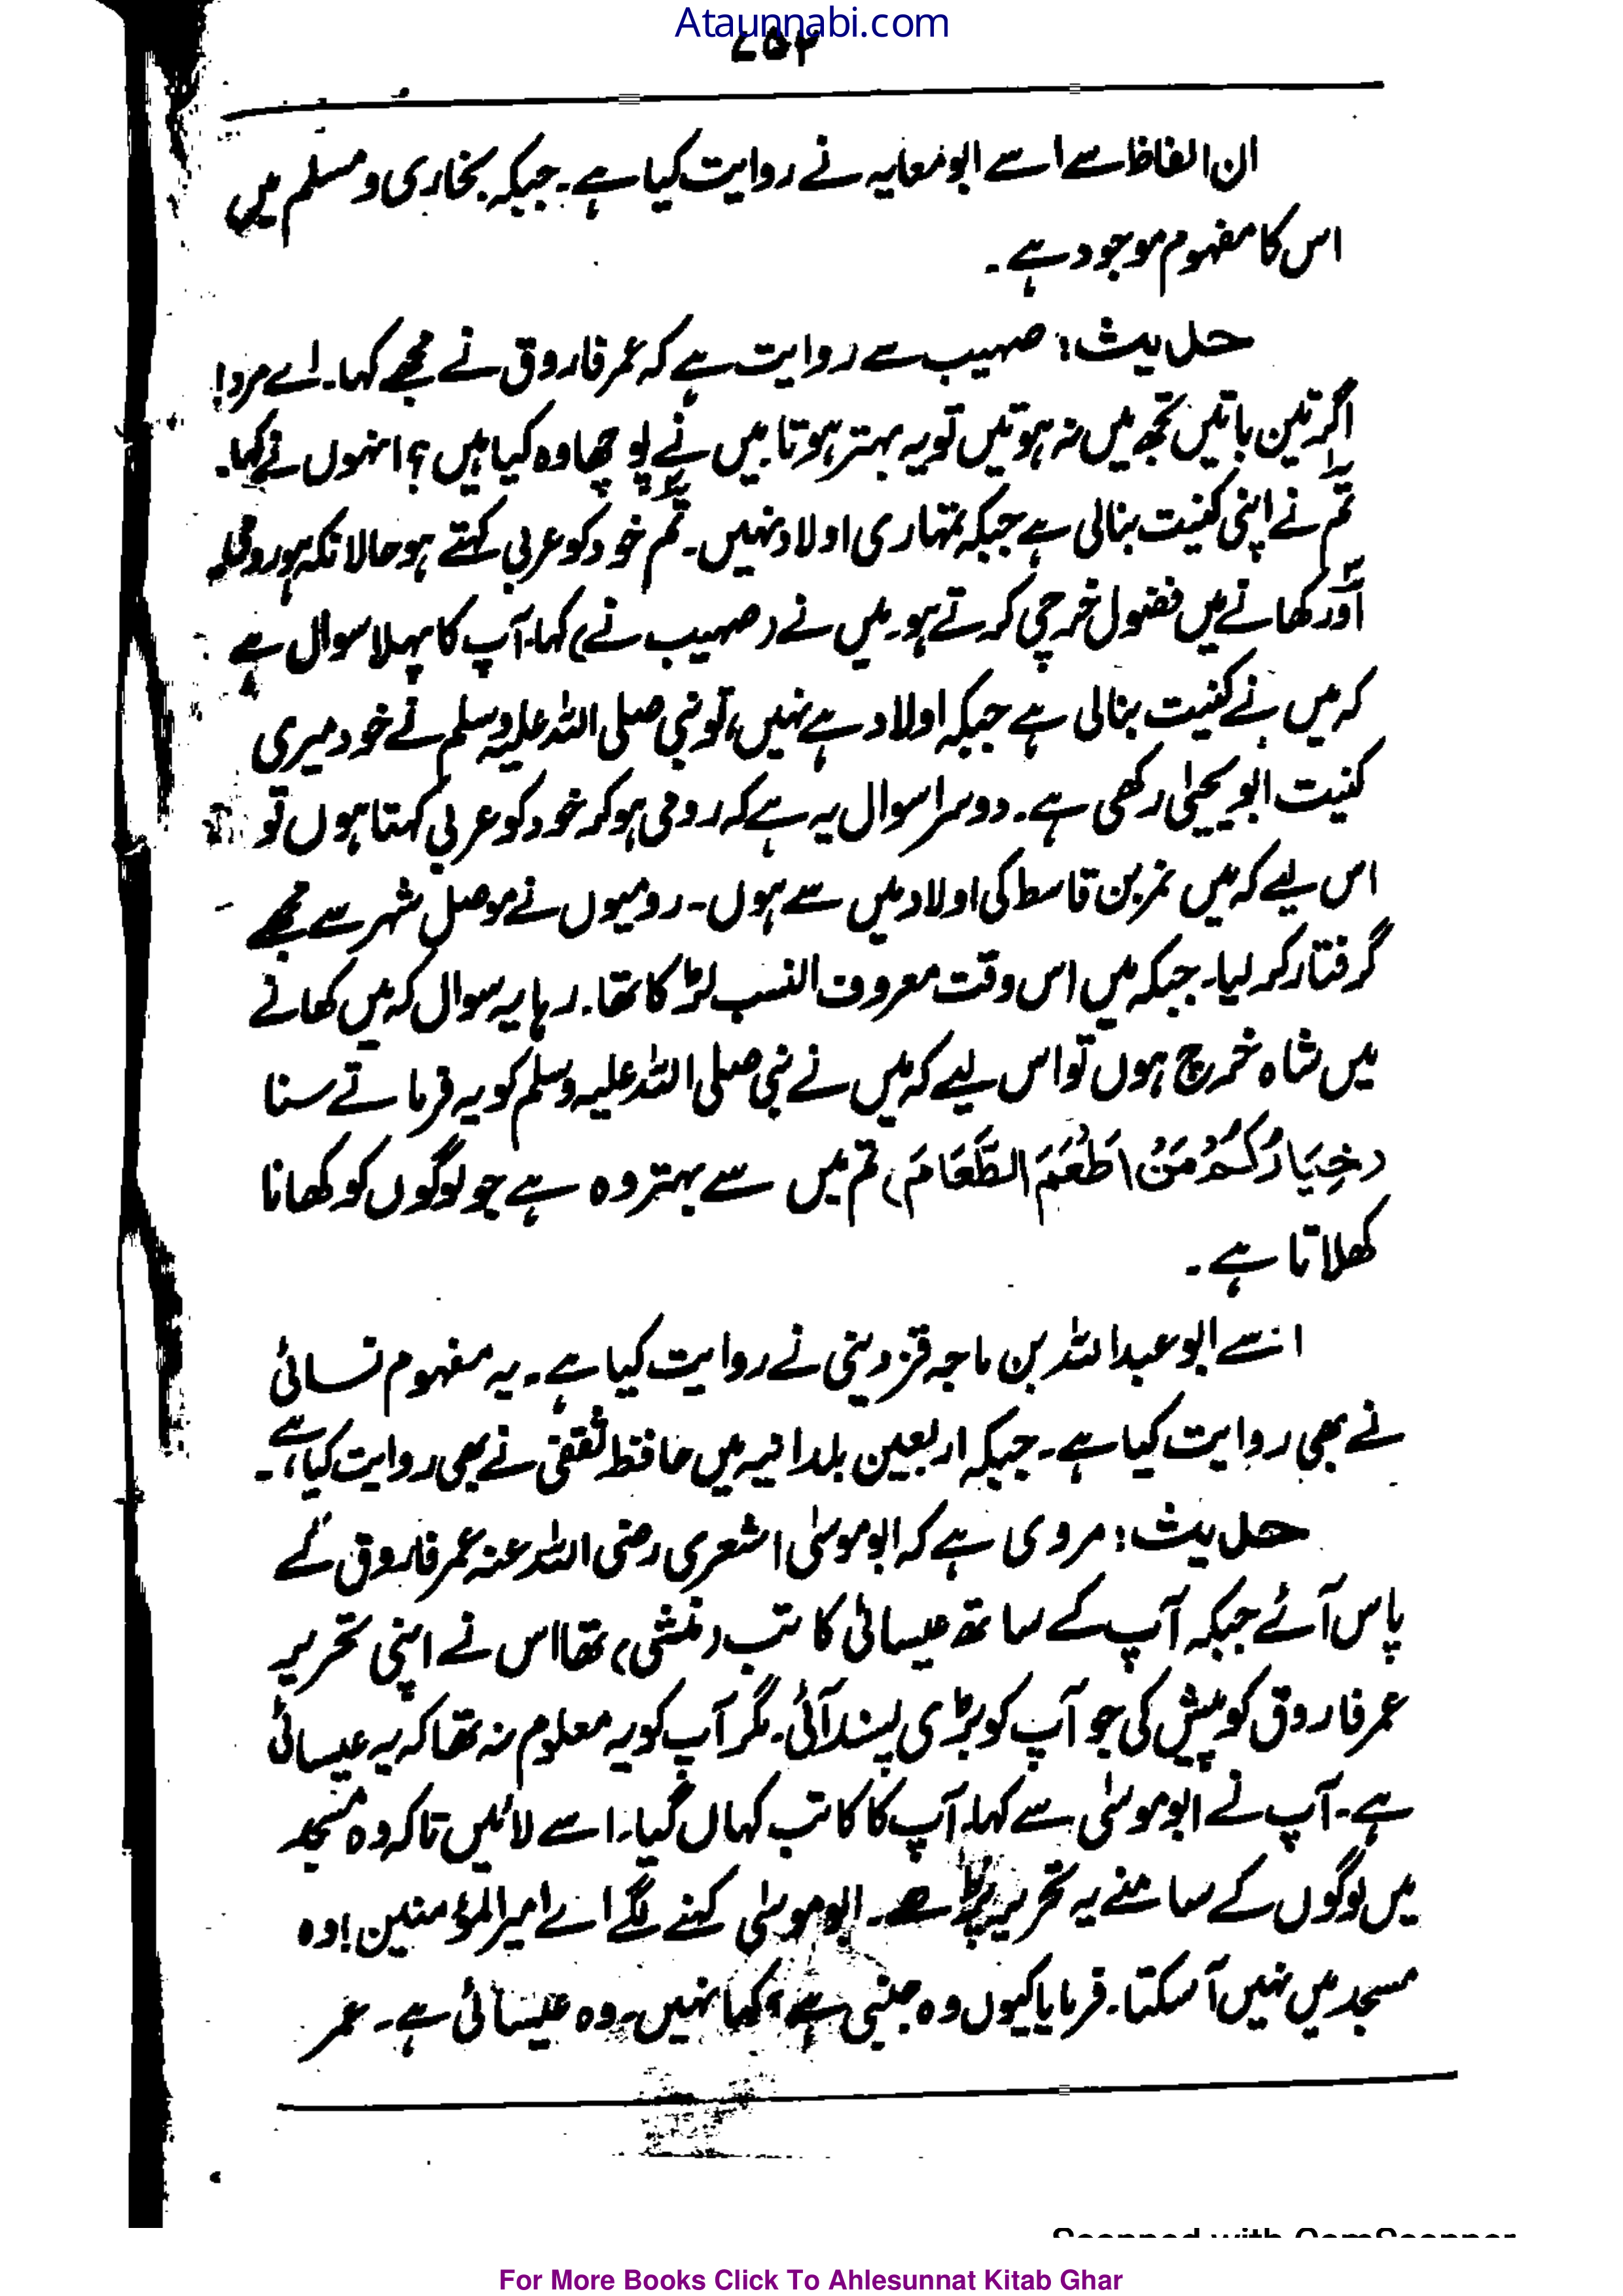 Ataunnabi.com
۷۵۲
ان الفاظ سے اسے ابو معایہ نے روایت کیا ہے۔ جبکہ بخاری و مسلم میں
اس کا مفہوم موجود ہے۔
حدیث: صہیب سے روایت ہے کہ عمر فاروق نے مجھے کہا۔ اے مرد!
اگر تین باتیں تجھ میں نہ ہوتیں تو یہ بہتر ہوتا۔ میں نے پوچھا وہ کیا ہیں؟ انہوں نے کہا۔
تم نے اپنی کنیت بنالی ہے جبکہ تمہاری اولاد نہیں۔ تم خود کو عربی کہتے ہو حالانکہ ہو رومی
اور کھانے میں فضول خرچی کرتے ہو۔ میں نے (صہیب نے) کہا۔ آپ کا پہلا سوال ہے
کہ میں نے کنیت بنالی ہے جبکہ اولاد ہے نہیں، تو نبی صلی اللہ علیہ وسلم نے خود میری
کنیت ابو یحییٰ رکھی ہے۔ دوسرا سوال یہ ہے کہ رومی ہو کر خود کو عربی کہتا ہوں تو
اس لیے کہ میں نمر بن قاسط کی اولاد میں سے ہوں۔ رومیوں نے موصل شہر سے مجھے
گرفتار کر لیا۔ جبکہ میں اس وقت معروف النسب لڑکا تھا۔ رہا یہ سوال کہ میں کھانے
میں شاہ خرچ ہوں تو اس لیے کہ میں نے نبی صلی اللہ علیہ وسلم کو یہ فرماتے سنا
(خِيَارُكُمْ مَنْ اَطْعَمَ الطَّعَامَ) تم میں سے بہتر وہ ہے جو لوگوں کو کھانا
کھلاتا ہے۔
اسے ابو عبداللہ بن ماجہ قزوینی نے روایت کیا ہے۔ یہ مفہوم نسائی
نے بھی روایت کیا ہے۔ جبکہ اربعین بلدانیہ میں حافظ ثقفی نے بھی روایت کیا ہے۔
حدیث: مروی ہے کہ ابو موسیٰ اشعری رضی اللہ عنہ عمر فاروق کے
پاس آئے جبکہ آپ کے ساتھ عیسائی کاتب (منشی) تھا اس نے اپنی تحریر
عمر فاروق کو پیش کی جو آپ کو بڑی پسند آئی۔ مگر آپ کو یہ معلوم نہ تھا کہ یہ عیسائی
ہے۔ آپ نے ابو موسیٰ سے کہا۔ آپ کا کاتب کہاں گیا۔ اسے لائیں تاکہ وہ مسجد
میں لوگوں کے سامنے یہ تحریر پڑھے۔ ابو موسیٰ کہنے لگے اے امیر المؤمنین! وہ
مسجد میں نہیں آ سکتا۔ فرمایا کیوں وہ جنبی ہے؟ کہا نہیں۔ وہ عیسائی ہے۔ عمر
Scanned with CamScanner
For More Books Click To Ahlesunnat Kitab Ghar